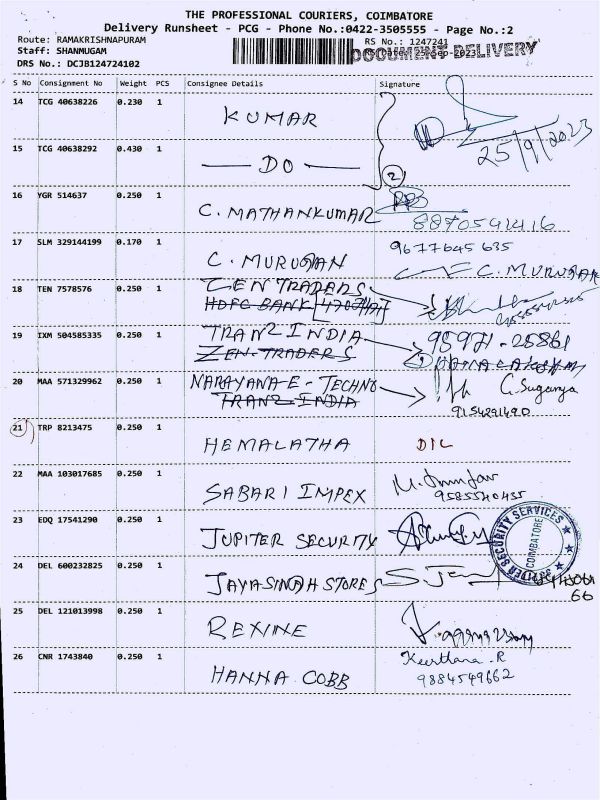 THE PROFESSIONAL COURIERS, COIMBATORE
Delivery Runsheet - PCG - Phone No.:0422-3505555 - Page No.:2
Route: RAMAKRISHNAPURAM
RS No.: 1247241
Staff: SHANMUGAM
DOCUMENT DELIVERY
DRS No.: DCJB124724102
S No Consignment No Weight PCS Consignee Details Signature
14 TCG 40638226 0.230 1 KUMAR
25/9/2023
15 TCG 40638292 0.430 1 — DO —
2
16 YGR 514637 0.250 1 C. MATHANKUMAR
8870591416
17 SLM 329144199 0.170 1 C. MURUGAN
9677645635
C. MURUGAN
18 TEN 7578576 0.250 1 ZEN TRADERS
HDFC BANK
19 IXM 504585335 0.250 1 TRANZ INDIA
95971-25861
ZEN TRADERS
20 MAA 571329962 0.250 1 NARAYANA E-TECHNO
G. Suganya
TRANZ INDIA
9154291490
21 TRP 8213475 0.250 1 HEMALATHA
DIL
22 MAA 103017685 0.250 1 SABARI IMPEX
9585540455
23 EDQ 17541290 0.250 1 JUPITER SECURITY
SECURITY SERVICES
COIMBATORE
24 DEL 600232825 0.250 1 JAYASINGH STORES
66
25 DEL 121013998 0.250 1 REXINE
26 CNR 1743840 0.250 1 HANNA COBB
Keerthana. R
9884549662